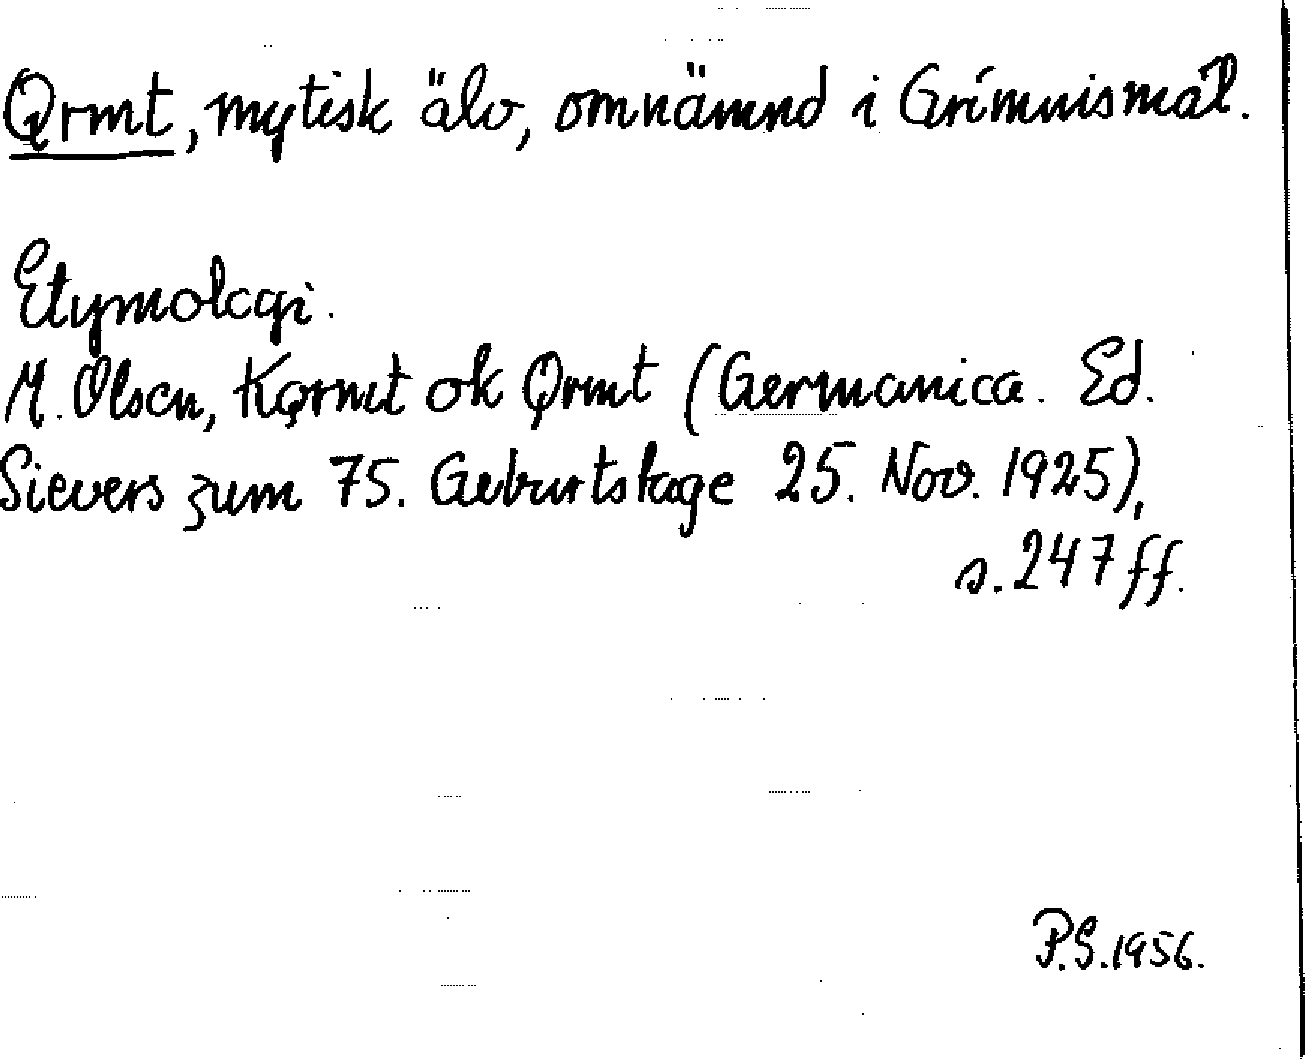 Ǫrmt, mytisk älv, omnämnd i Grímnismál.
Etymologi.
M. Olsen, Kǫrmt ok Ǫrmt (Germanica. Ed.
Sievers zum 75. Geburtstage 25. Nov. 1925),
s. 247 ff.
P.S. 1956.